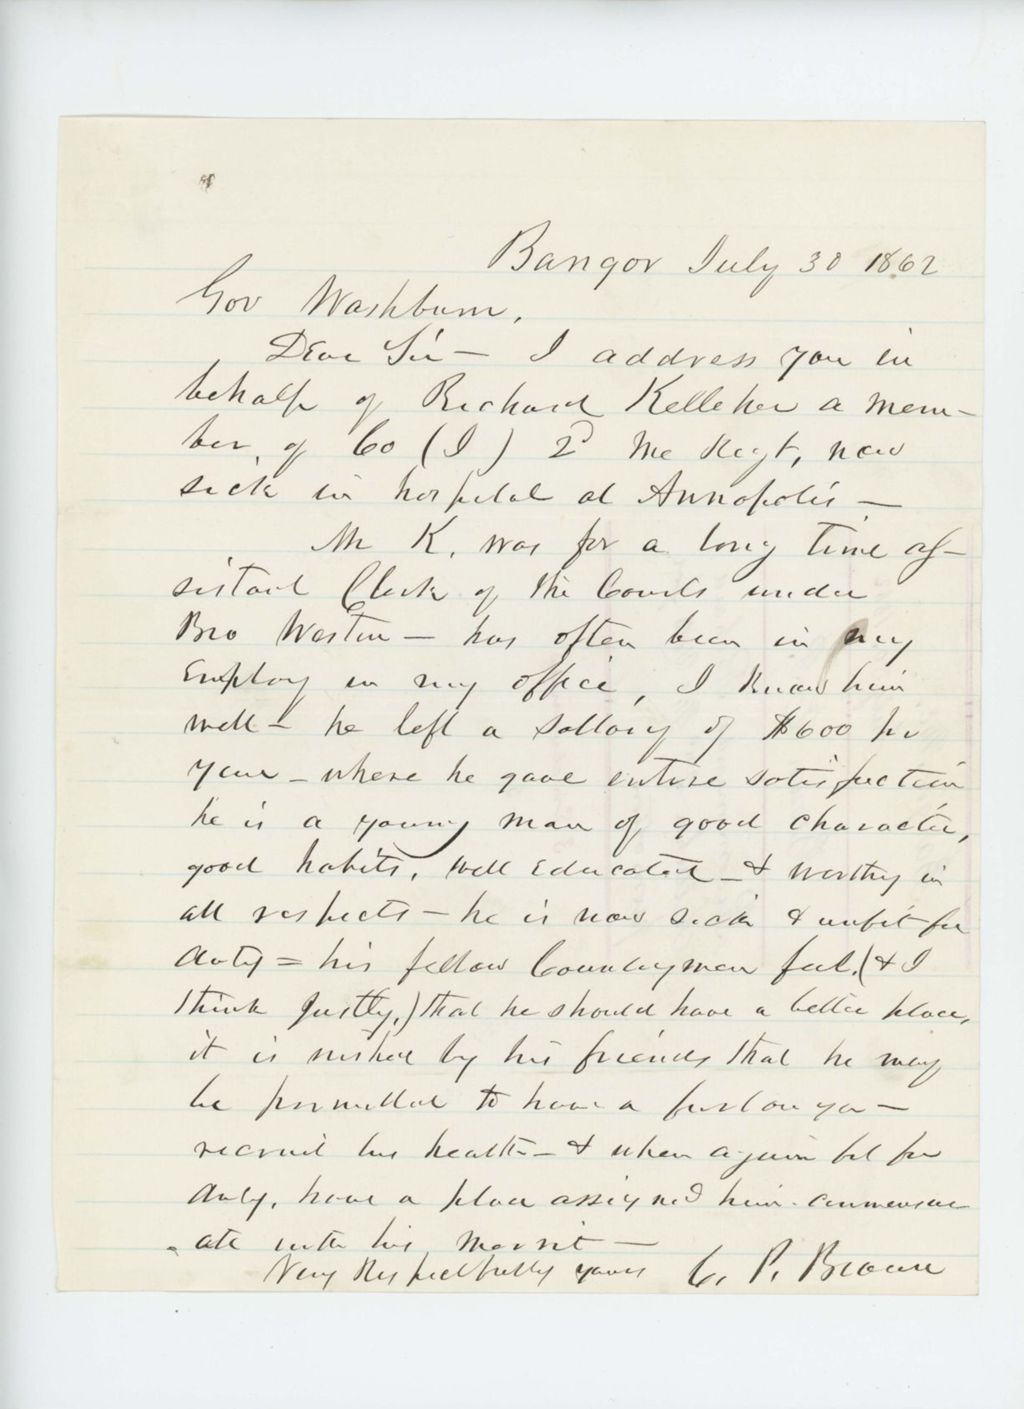 Bangor July 30 1862
Gov Washburn,
Dear Sir — I address you in
behalf of Richard Kelleher a mem—
ber, of Co (I) 2d Me Regt, now
sick in hospital at Annopolis —
Mr K. was for a long time as—
sistant Clerk of the Courts under
Bro Weston — has often been in my
Employ in my office, I know him
well — he left a sallary of $600 per
year — where he gave entire satisfaction
he is a young man of good character,
good habits, well Educated — & worthy in
all respects — he is now sick & unfit for
duty = his fellow Countrymen feel. (& I
think justly,) that he should have a better place,
it is wished by his friends that he may
be permitted to have a furlough —
recruit his health — & when again fit for
duty, have a place assigned him commensur
ate with his merrit —
Very Respectfully yours C. P. Brown